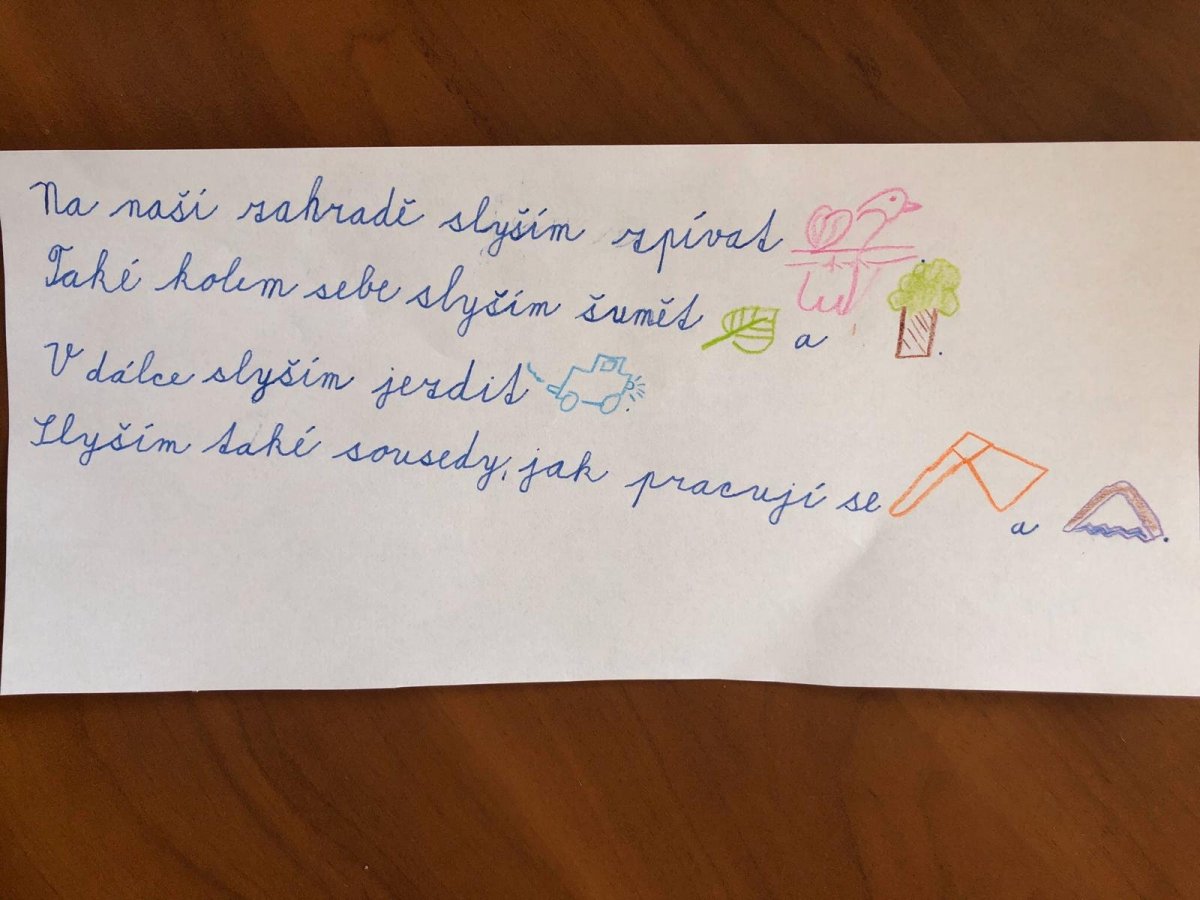 Na naší zahradě slyším zpívat .
Také kolem sebe slyším šumět a .
V dálce slyším jezdit .
Slyším také sousedy, jak pracují se a .